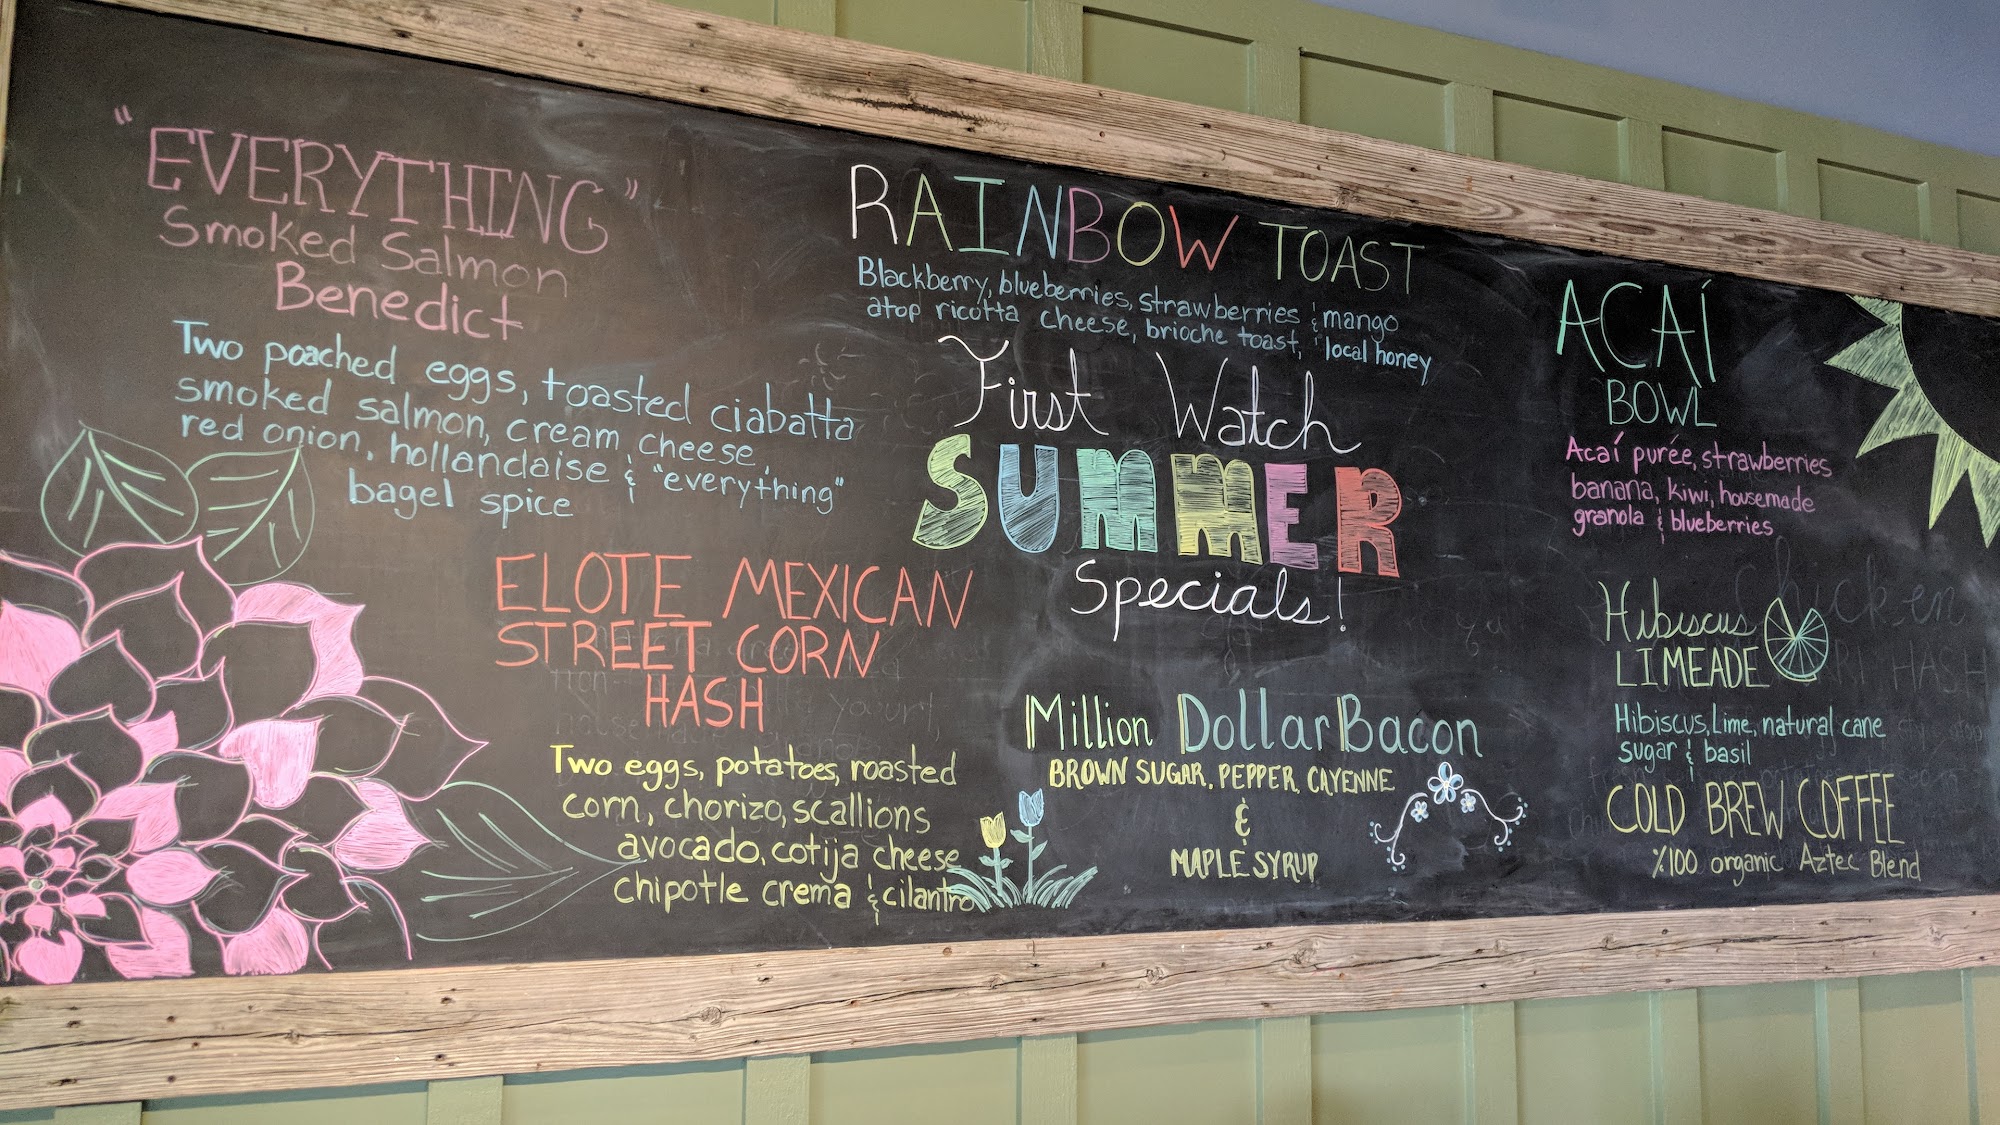 "EVERYTHING"
Smoked Salmon
Benedict
Two poached eggs, toasted ciabatta
smoked salmon, cream cheese,
red onion, hollandaise & "everything"
bagel spice
ELOTE MEXICAN
STREET CORN
HASH
Two eggs, potatoes, roasted
corn, chorizo, scallions
avocado, cotija cheese
chipotle crema & cilantro
RAINBOW TOAST
Blackberry, blueberries, strawberries & mango
atop ricotta cheese, brioche toast, local honey
First Watch
SUMMER
Specials!
Million Dollar Bacon
BROWN SUGAR, PEPPER, CAYENNE
&
MAPLE SYRUP
ACAÍ
BOWL
Acaí purée, strawberries
banana, kiwi, housemade
granola & blueberries
Hibiscus
LIMEADE
Hibiscus, Lime, natural cane
sugar & basil
COLD BREW COFFEE
%100 organic Aztec Blend
Chicken
HASH